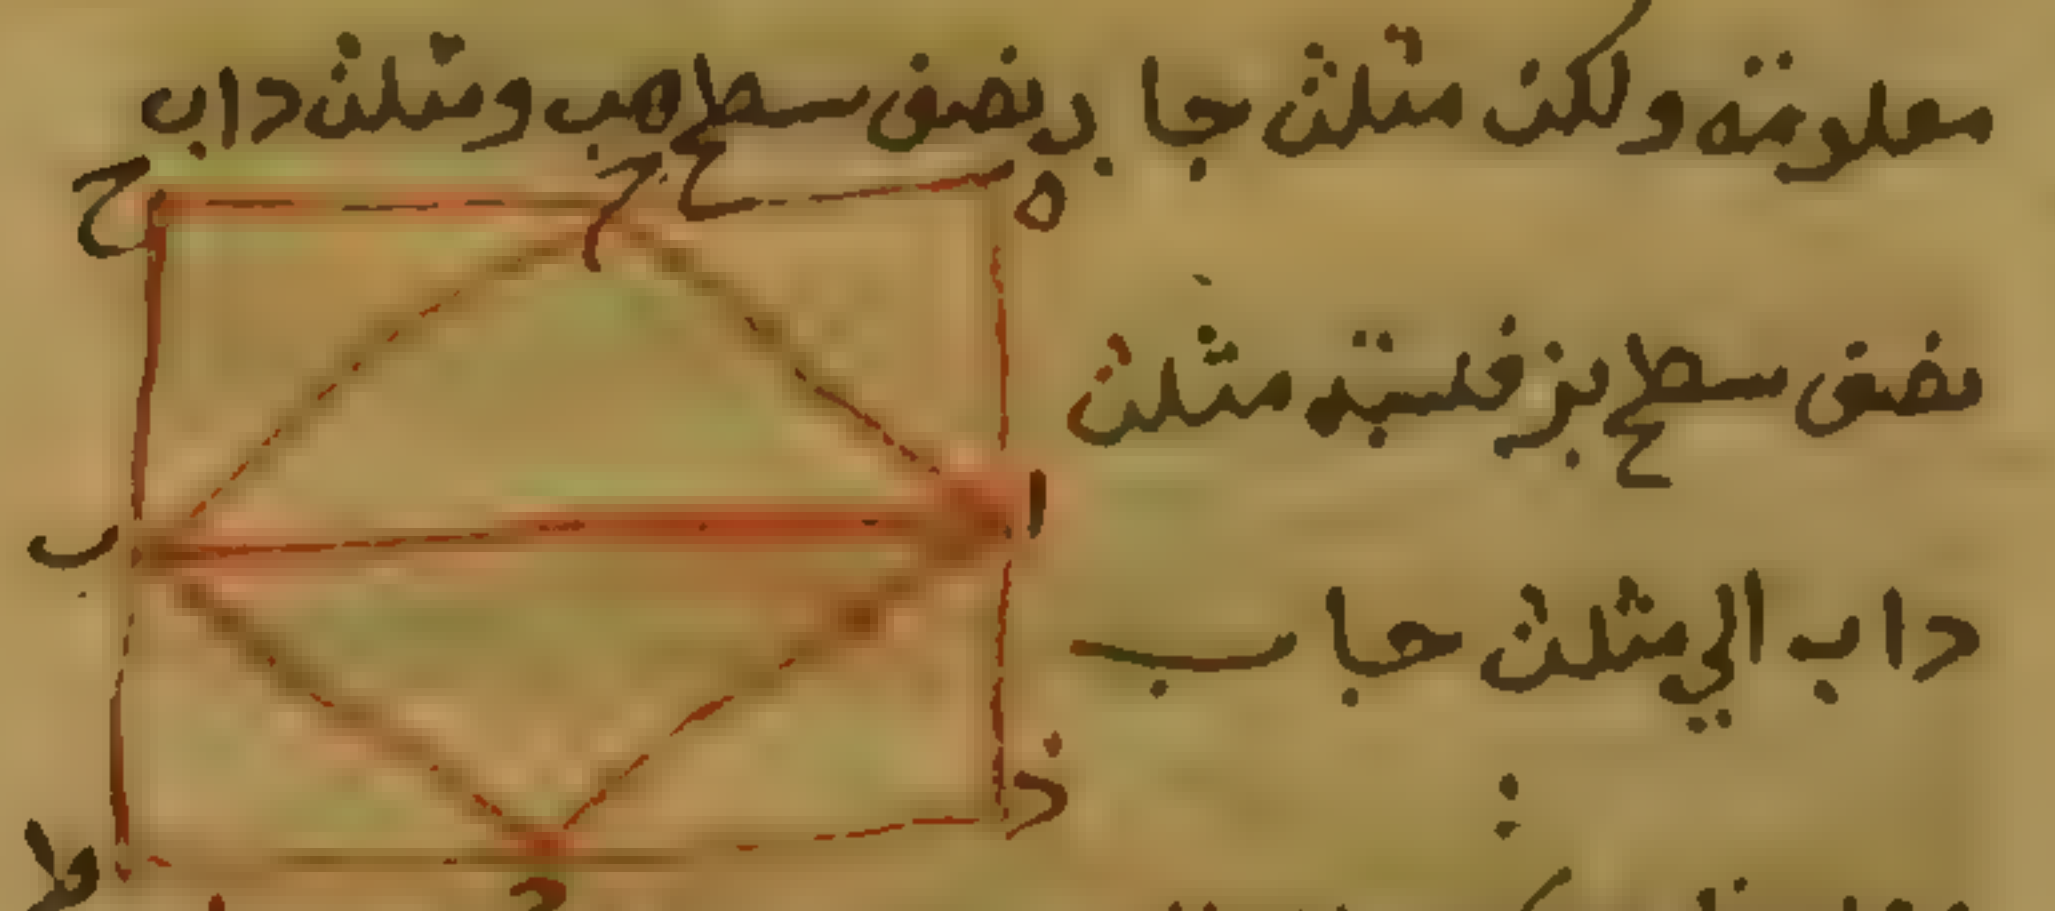 معلومة ولكن مثلث جاب نصف سطح هب ومثلث داب
نصف سطح بز فنسبة مثلث
داب الي مثلث جاب
ح ج ه
ا
ب
ز
ط د